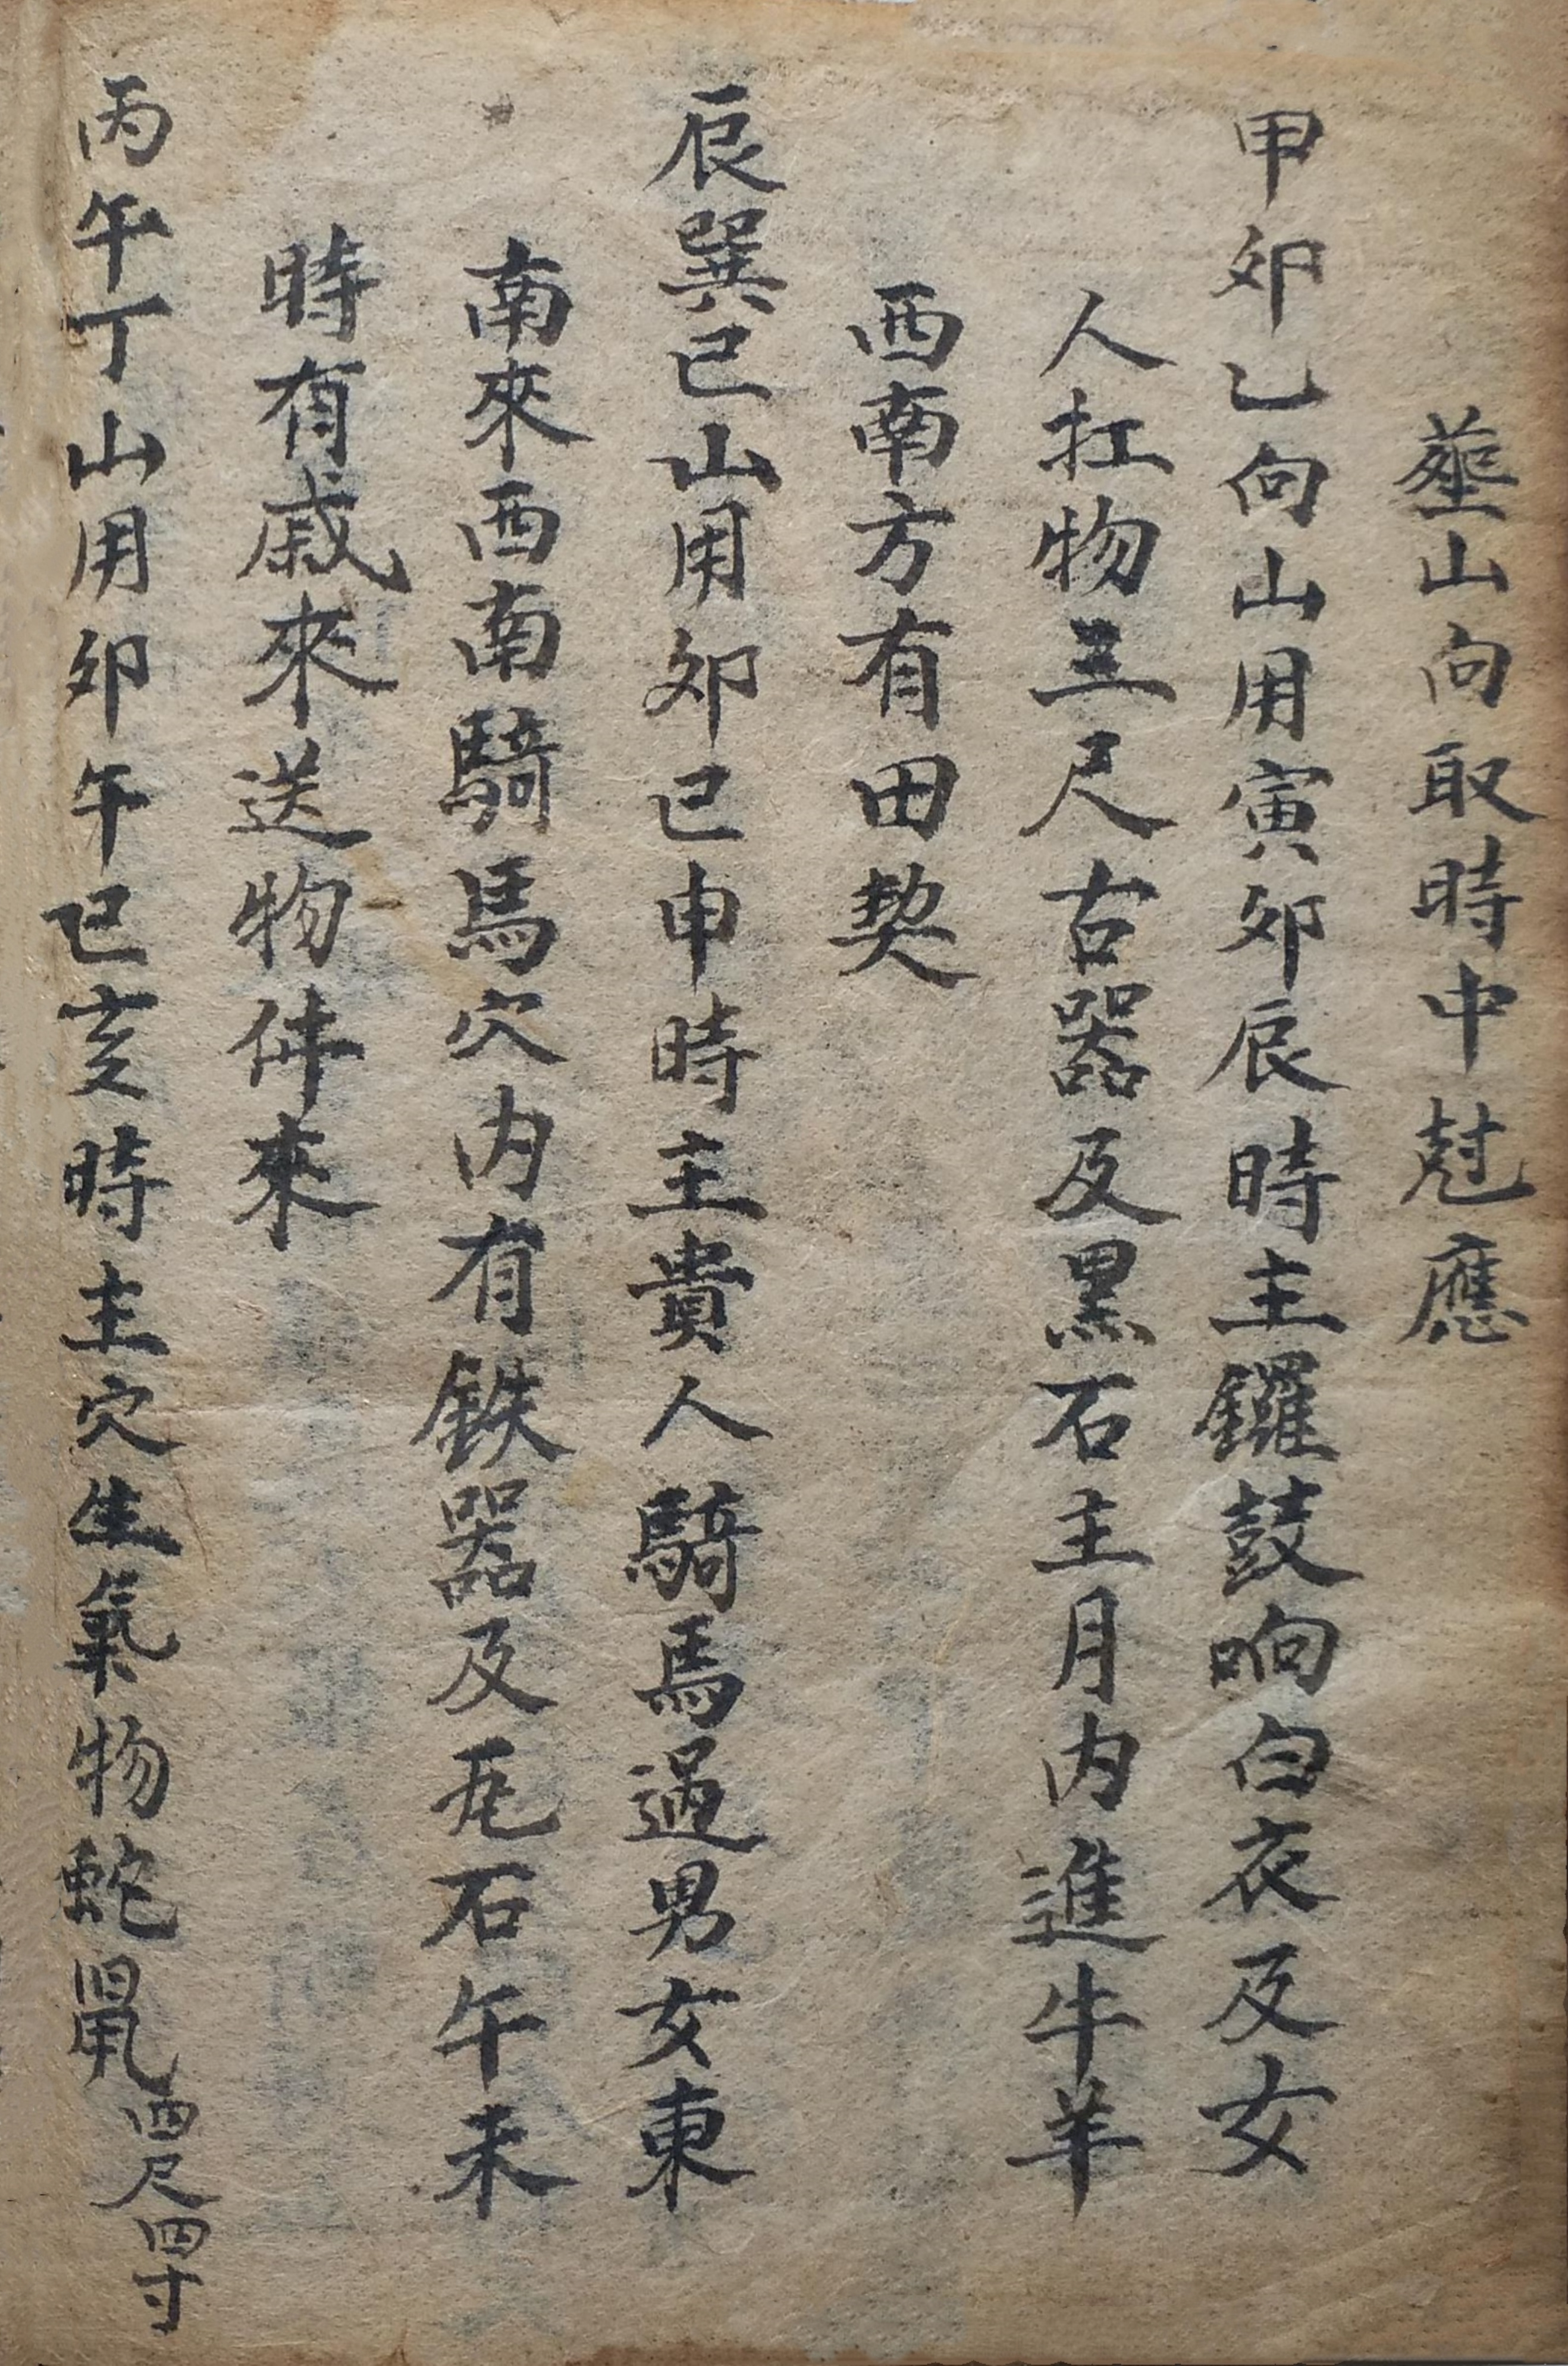 塟山向取時中尅應
甲卯乙向山用寅卯辰時主鑼鼓响白衣及女
人扛物三尺古器及黑石主月内進牛羊
西南方有田契
辰巽巳山用卯巳申時主貴人騎馬過男女東
南來西南騎馬穴内有鉄器及瓦石午未
時有戚來送物件來
丙午丁山用卯午巳亥時主穴生氣物蛇鼠四尺四寸